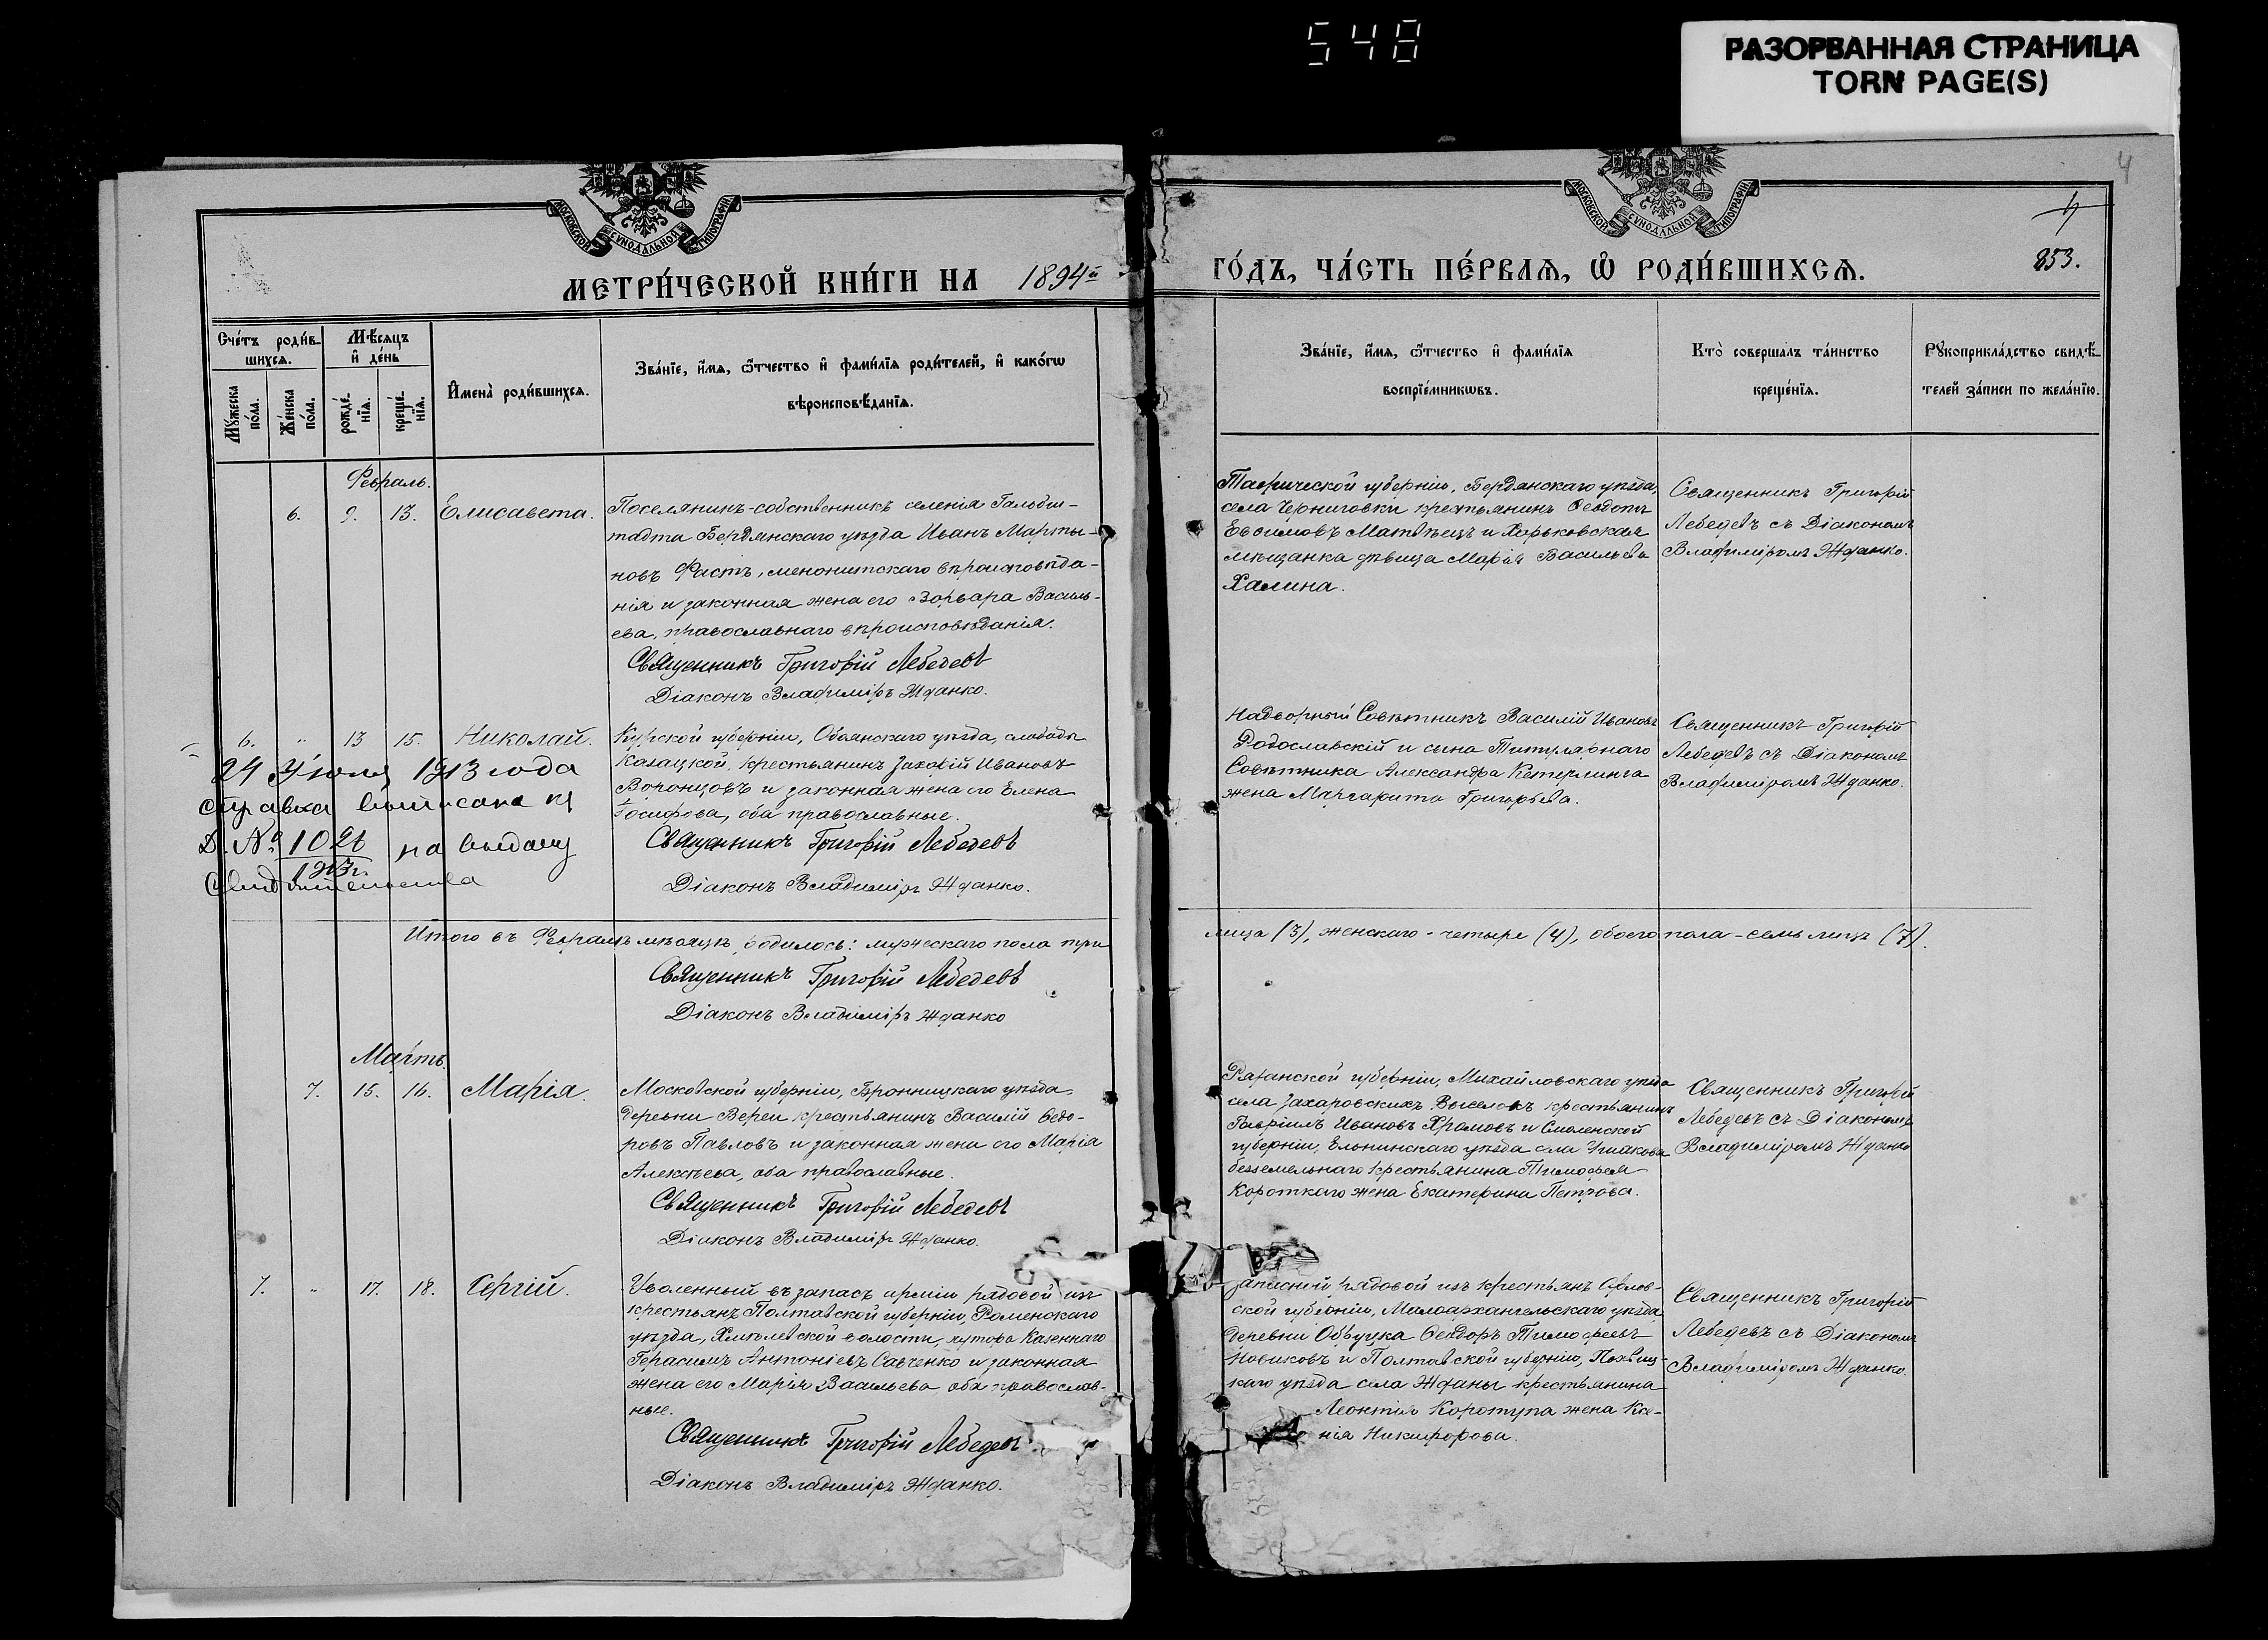 548
РАЗОРВАННАЯ СТРАНИЦА
TORN PAGE(S)
4
МОСКОВСКОЙ СѴНОДАЛЬНОЙ ТИПОГРАФІИ
МОСКОВСКОЙ СѴНОДАЛЬНОЙ ТИПОГРАФІИ
4
253.
МЕТРИ́ЧЕСКОЙ КНИ́ГИ НА 1894й
ГО́ДЪ, ЧА́СТЬ ПЕ́РВАѦ, Ѡ РОДИ́ВШИХСѦ.
Сче́тъ роди́в-
шихсѧ.
Мꙋ́жеска
по́ла.
Же́нска
по́ла.
Мѣ́сѧцъ
и҆ де́нь
рожде́-
нїѧ.
креще́-
нїѧ.
И҆мена̀ роди́вшихсѧ.
Зва́нїе, и҆́мѧ, ѻ҆́тчество и҆ фами́лїѧ роди́телей, и҆ како́гѡ
вѣроисповѣ́данїѧ.
Зва́нїе, и҆́мѧ, ѻ҆́тчество и҆ фами́лїѧ
воспрїе́мникѡвъ.
Кто̀ соверша́лъ та́инство
креще́нїѧ.
Рꙋкоприкла́дство свидѣ́-
телей за́писи по жела́нїю.
Февраль.
6. 9. 13. Елисавета.
Поселянинъ-собственникъ селенія Гальбш-
тадта Бердянскаго уѣзда Иванъ Марты-
новъ Фастъ, менонитскаго вѣроисповѣда-
нія и законная жена его Варвара Василь-
ева, православнаго вѣроисповѣданія.
Священникъ Григорій Лебедевъ
Діаконъ Владиміръ Жданко.
Таврической губерніи, Бердянскаго уѣзда,
села Черниговки крестьянинъ Ѳеодотъ
Евѳимовъ Матвѣецъ и Харьковская
мѣщанка дѣвица Марія Васильева
Халина.
Священникъ Григорій
Лебедевъ съ Діакономъ
Владиміромъ Жданко.
6. " 13 15. Николай.
24 Іюля 1913 года
справка выписана къ
Д. № 1026
1913г.
на выдачу
свидѣтельства
Курской губерніи, Обоянскаго уѣзда, слободы
Казацкой, крестьянинъ Захарій Ивановъ
Воронцовъ и законная жена его Елена
Іосифова, оба православные.
Священникъ Григорій Лебедевъ
Діаконъ Владиміръ Жданко.
Надворный Совѣтникъ Василій Ивановъ
Родославскій и сына Титулярнаго
Совѣтника Александра Кетерлинга
жена Маргарита Григорьева.
Священникъ Григорій
Лебедевъ съ Діакономъ
Владиміромъ Жданко.
Итого въ Февралѣ мѣсяцѣ родилось: мужескаго пола три
лица (3), женскаго - четыре (4), обоего пола - семь лицъ (7).
Священникъ Григорій Лебедевъ
Діаконъ Владиміръ Жданко
Мартъ.
7. 15. 16. Марія.
Московской губерніи, Бронницкаго уѣзда,
деревни Вереи крестьянинъ Василій Ѳедо-
ровъ Павловъ и законная жена его Марія
Алексѣева, оба православные.
Священникъ Григорій Лебедевъ
Діаконъ Владиміръ Жданко.
Рязанской губерніи, Михайловскаго уѣзда
села Захаровскихъ Выселокъ крестьянинъ
Гавріилъ Ивановъ Храмовъ и Смоленской
губерніи, Ельнинскаго уѣзда села Ушакова
безземельнаго крестьянина Тимофея
Короткаго жена Екатерина Петрова.
Священникъ Григорій
Лебедевъ съ Діакономъ
Владиміромъ Жданко
7. " 17. 18. Сергій.
Уволенный въ запасъ арміи рядовой изъ
крестьянъ Полтавской губерніи, Роменскаго
уѣзда, Хмѣлевской волости, хутора Казеннаго
Герасимъ Антоніевъ Савченко и законная
жена его Марія Васильева оба православ-
ные.
Священникъ Григорій Лебедевъ
Діаконъ Владиміръ Жданко.
Запасной рядовой изъ крестьянъ Орлов-
ской губерніи, Малоархангельскаго уѣзда
деревни Ѳеодоръ Тимофеевъ
Новиковъ и Полтавской губерніи, Лохвиц-
каго уѣзда села Жданы крестьянина
Леонтія Коротуна жена Ксе-
нія Никифорова.
Священникъ Григорій
Лебедевъ съ Діакономъ
Владиміромъ Жданко.